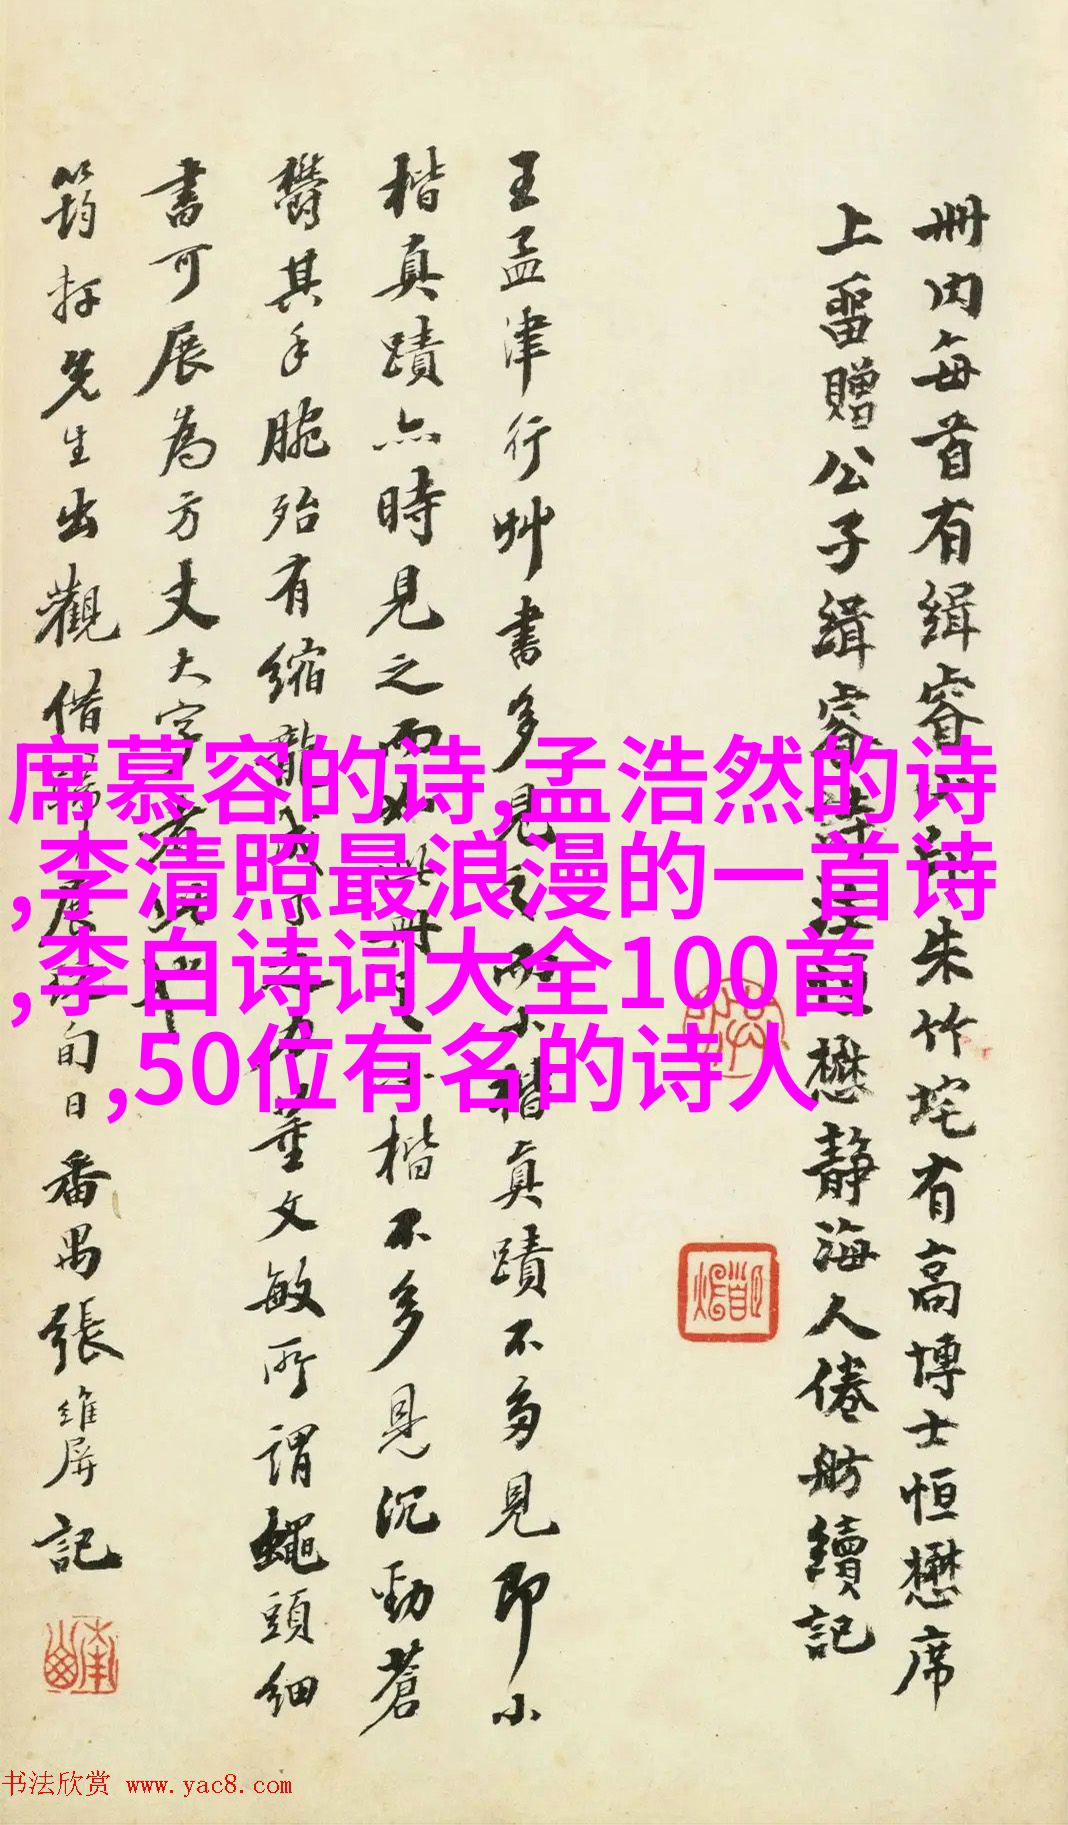 册内每首有緝睿 朱竹垞有高博士恒懋席
上畱贈公子緝睿 懋静海人倦舫續記
王孟津行艸書多見之而小楷真蹟不多見即小
楷真蹟亦時見之而如此冊 楷不多見沉勁蒼
鬱其手腕殆有縮龍成寸之力董文敏所謂蠅頭細
書可展為方丈大字者
筠 先生出觀借 展 旬日番禺張維屏記
席慕容的诗,孟浩然的诗
,李清照最浪漫的一首诗
,李白诗词大全100首
,50位有名的诗人
书法欣赏 www.yac8.com